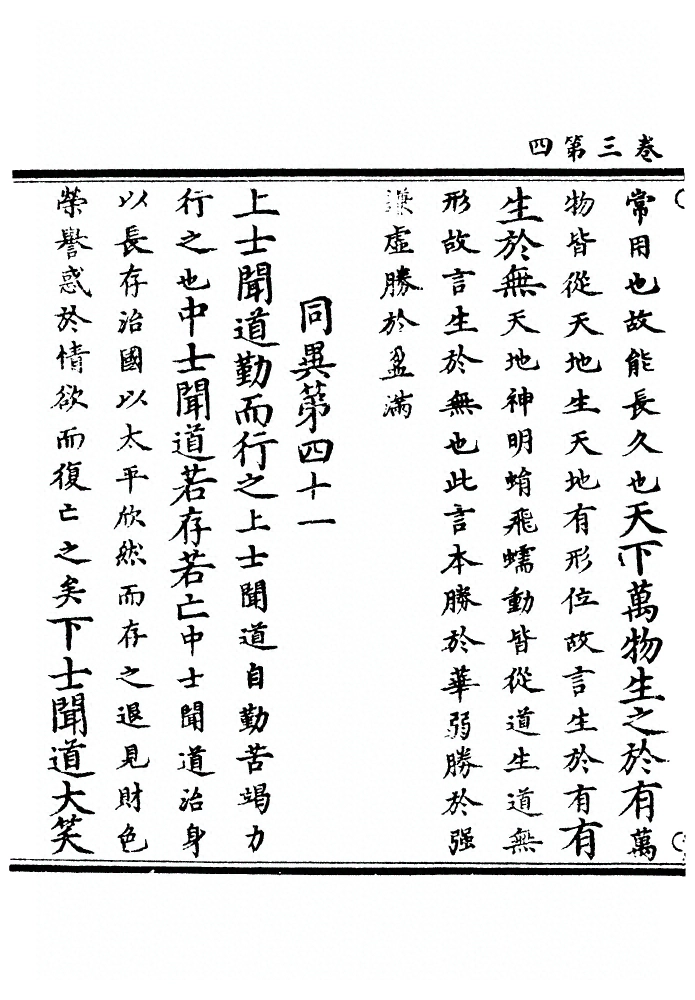 卷三第四
常用也故能長久也天下萬物生之於有萬
物皆從天地生天地有形位故言生於有有
生於無天地神明蜎飛蠕動皆從道生道無
形故言生於無也此言本勝於華弱勝於强
謙虛勝於盈滿
同異第四十一
上士聞道勤而行之上士聞道自勤苦竭力
行之也中士聞道若存若亡中士聞道治身
以長存治國以太平欣然而存之退見財色
榮譽惑於情欲而復亡之矣下士聞道大笑